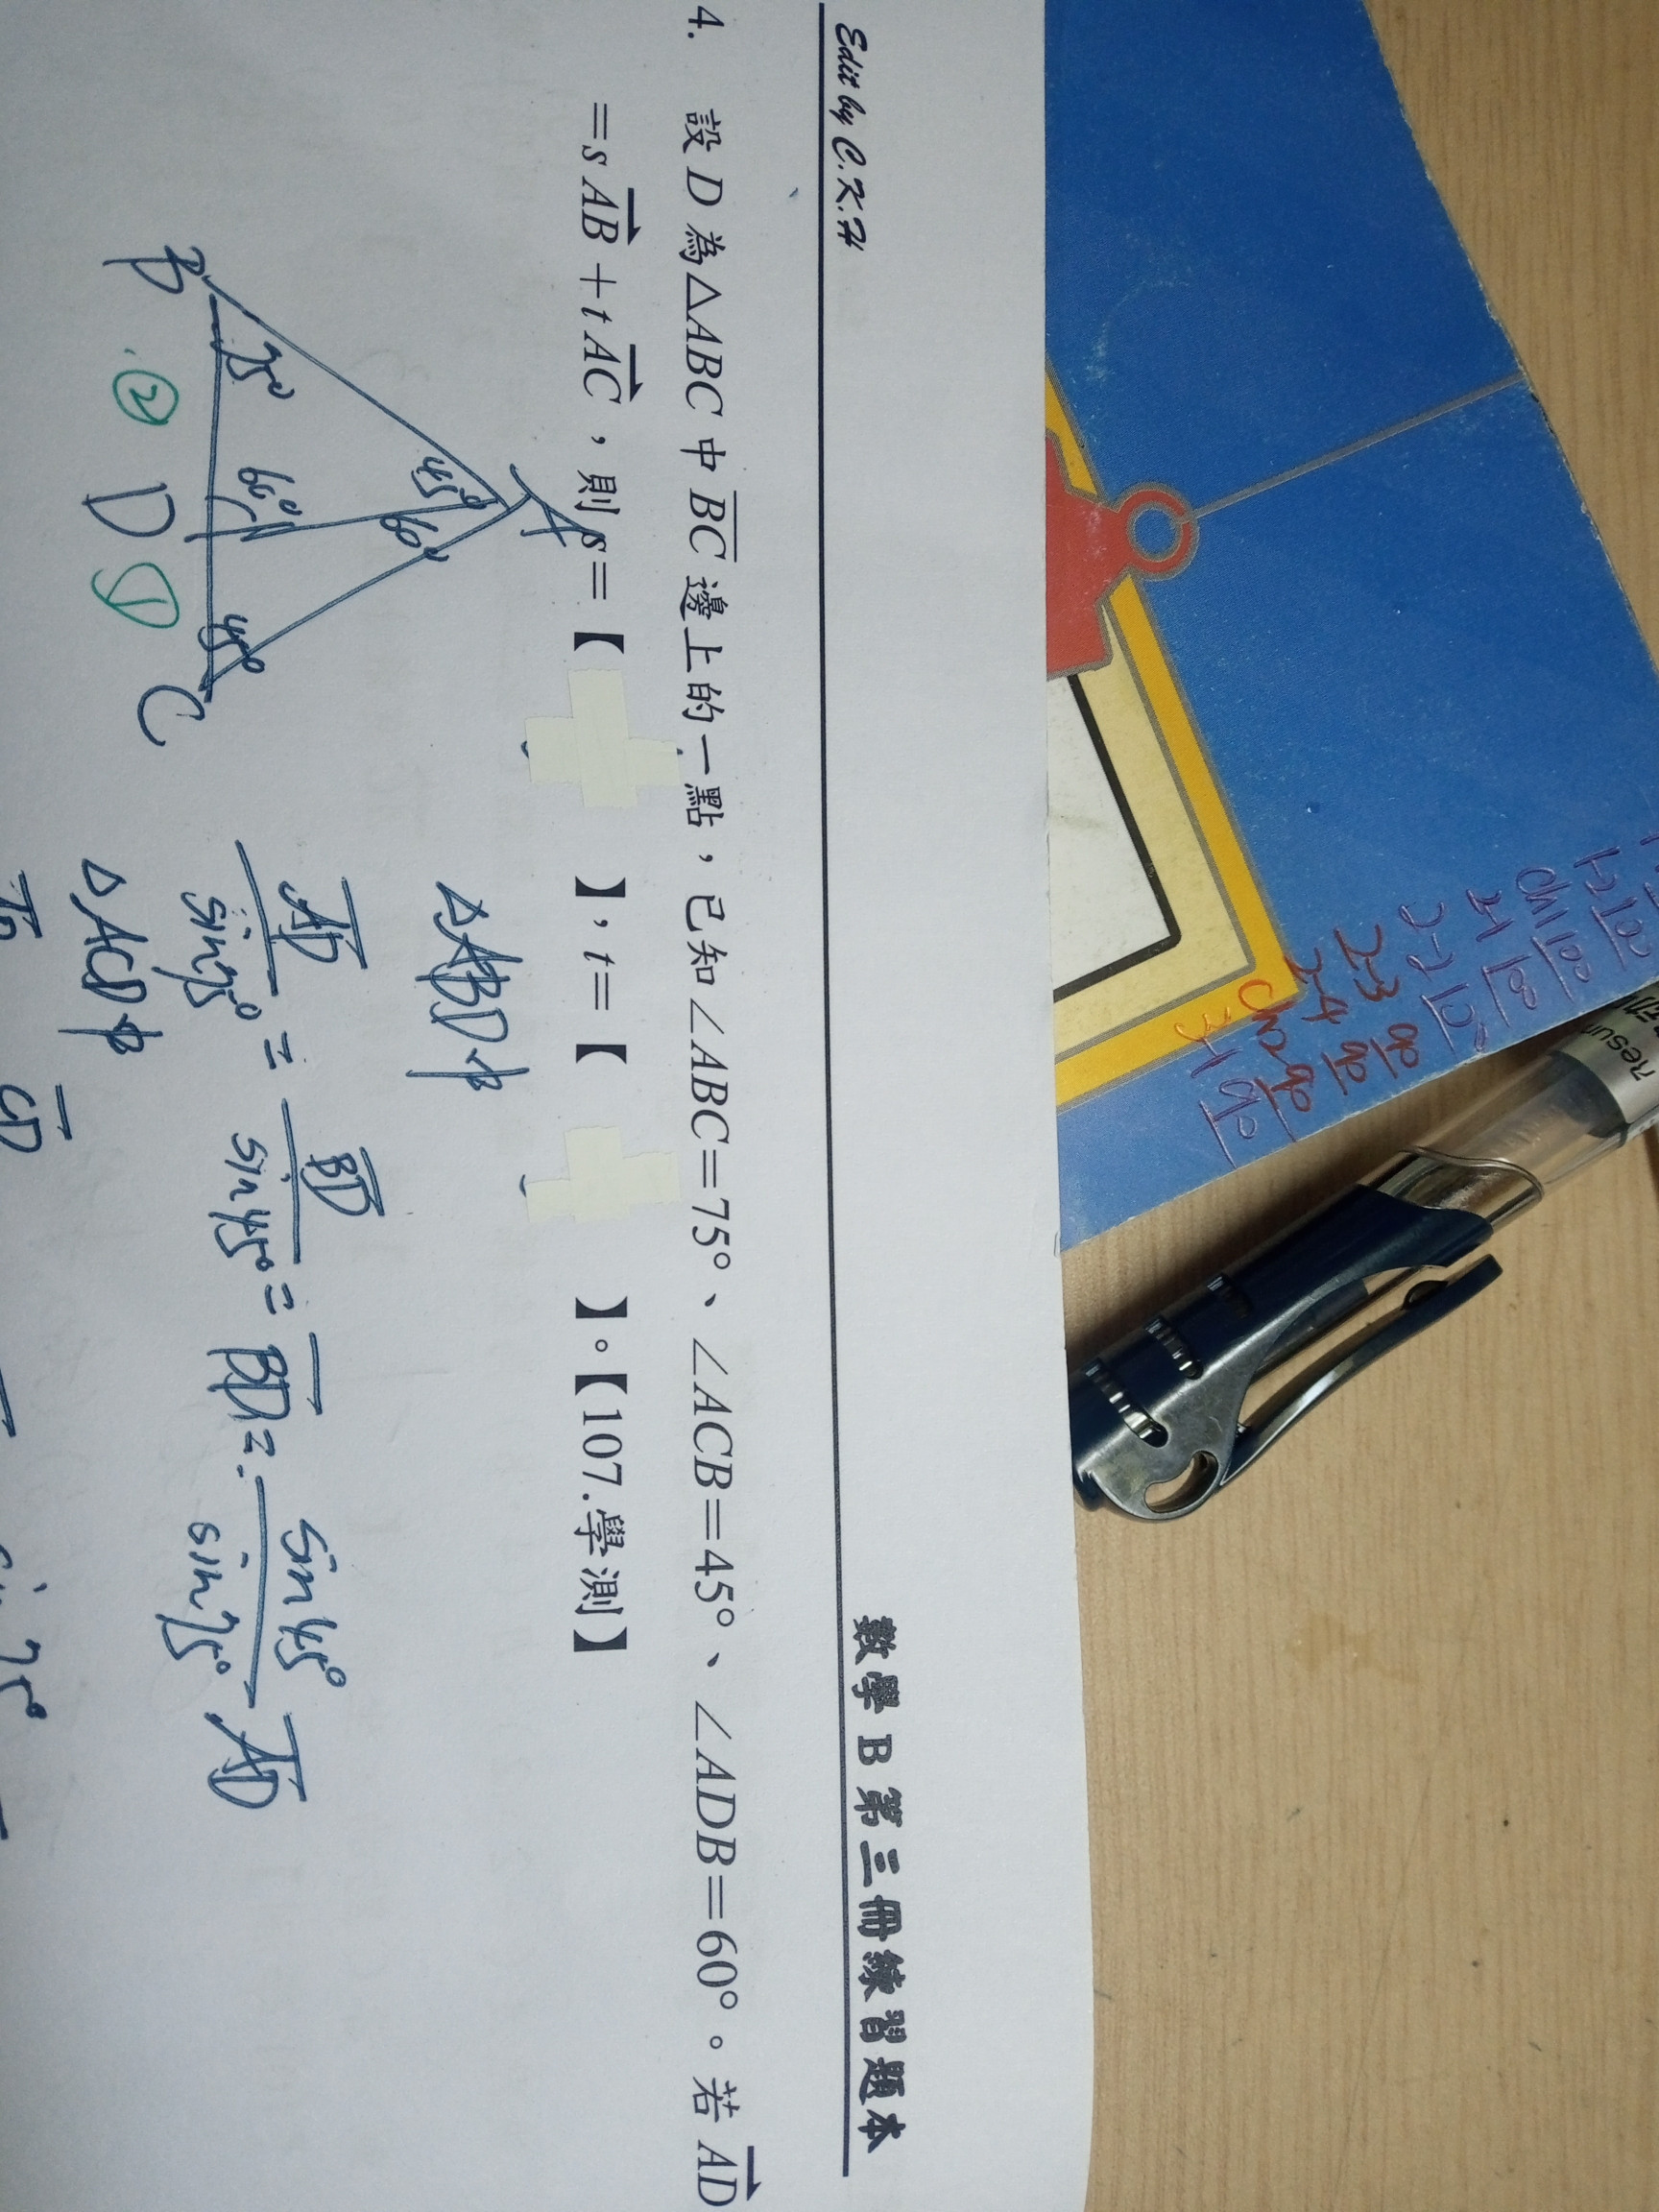 Edit by C.K.H
數學 B 第三冊練習題本
4. 設 D 為△ABC 中 BC 邊上的一點，已知∠ABC=75°、∠ACB=45°、∠ADB=60°。若 AD
=s AB+t AC，則 s=【 】，t=【 】。【107.學測】
A
45° 60°
75° 60° 45°
B D C
② ①
△ABD中
AD/sin75° = BD/sin45° = BD = sin45°/sin75° AD
△ACD中
CD
2-2
2-3
2-4
3-1